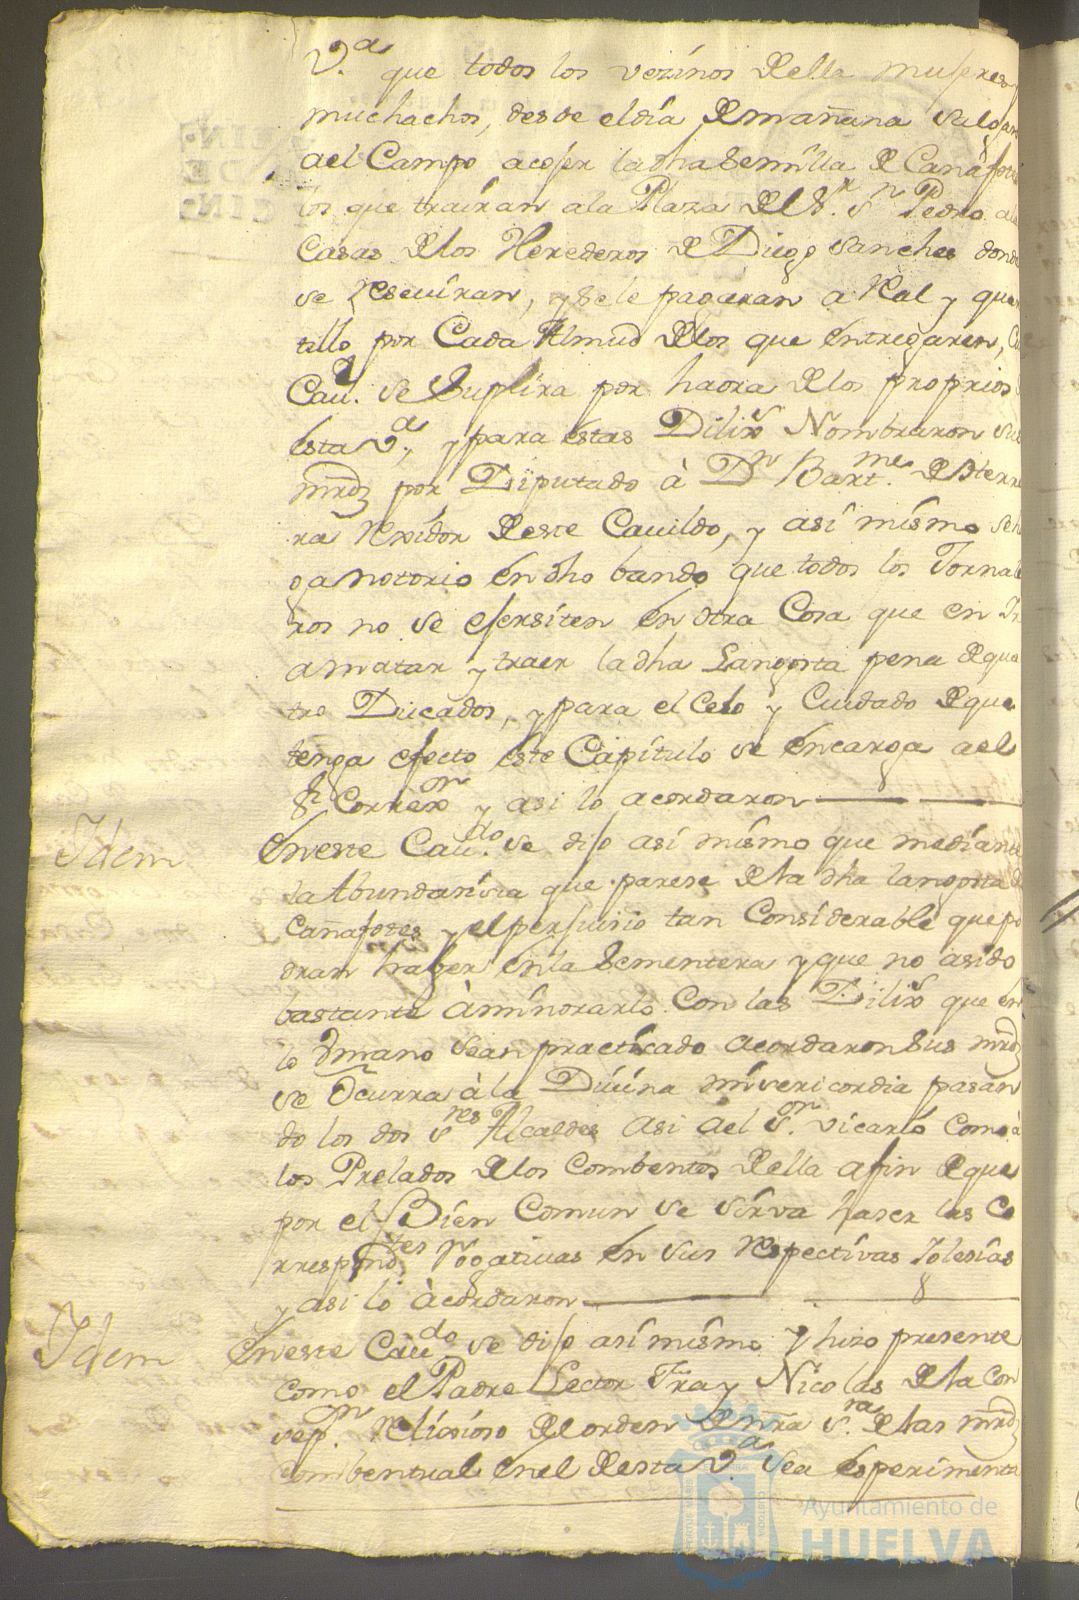 V.ª que todos los vezinos della mujeres y
muchachos, desde el día de mañana salgan
ael Campo acojer ladha semilla de Cañafote
los que trairan ala Plaza del S.r S.n Pedro a la
Casas de los Herederos de Diego Sanches donde
se reseuiran, y sele pagaran a Real y quar
tillo por Cada Almud de los que entregaren,
Cau.º se suplira por haora de los proprios
esta V.ª, y para estas Dilix.s Nombraron sus
mrds por Diputado à D.n Bart.me de
ra Rexidor deste Cauildo, y asi mismo se h
ga notorio en dho bando que todos los Jornale
ros no se ejersiten en otra Cosa que en Ir
a matar y traer ladha Langosta pena de qua
tro Ducados, y para el Celo y Cuidado de que
tenga efecto este Capítulo se encarga ael
S.r Correx.or y asi lo acordaron
Idem Eneste Cau.do se dijo asi mismo que mediante
la Abundansia que parese de la dha langosta de
Cañafotes y el perjuisio tan Considerable que po
dran haser en la Sementera y que no a sido
bastante à aminorarlo Con las Dilix.s que en
lo Umano sean practicado acordaron sus mrds
se Ocurra à la Diuina misericordia pasan
do los dos S.res Alcaldes asi ael S.or Vicario Como à
los Prelados de los Combentos della afin de que
por el Bien Comun se sirva haser las Co
rrespond.tes Rogatiuas en sus respectivas Iglesias
y asi lo àcordaron
Idem Eneste Cau.do se dijo asi mismo y hizo presente
como el Padre Lector Fray Nicolas de la Con
sep.n relixioso del orden de nra S.ra de las mrds
combentual en el desta V.ª sea esperimenta
Ayuntamiento de
HUELVA